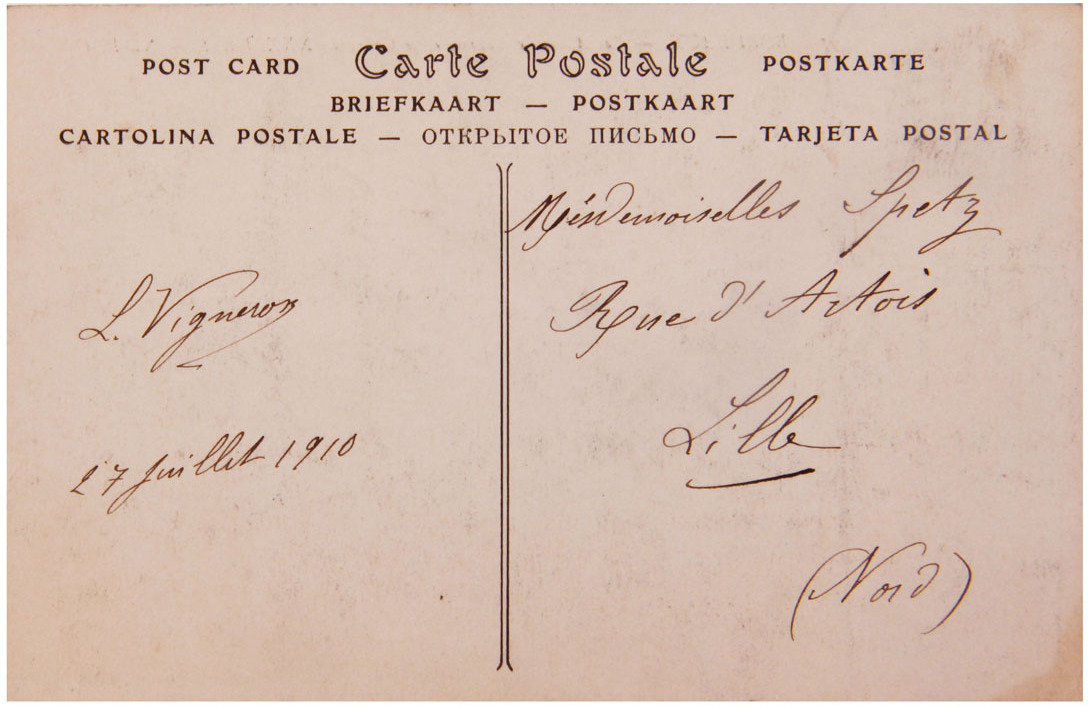 POST CARD Carte Postale POSTKARTE
BRIEFKAART — POSTKAART
CARTOLINA POSTALE — ОТКРЫТОЕ ПИСЬМО — TARJETA POSTAL
L. Vigneron
27 juillet 1910
Mesdemoiselles Spetz
Rue d'Artois
Lille
(Nord)